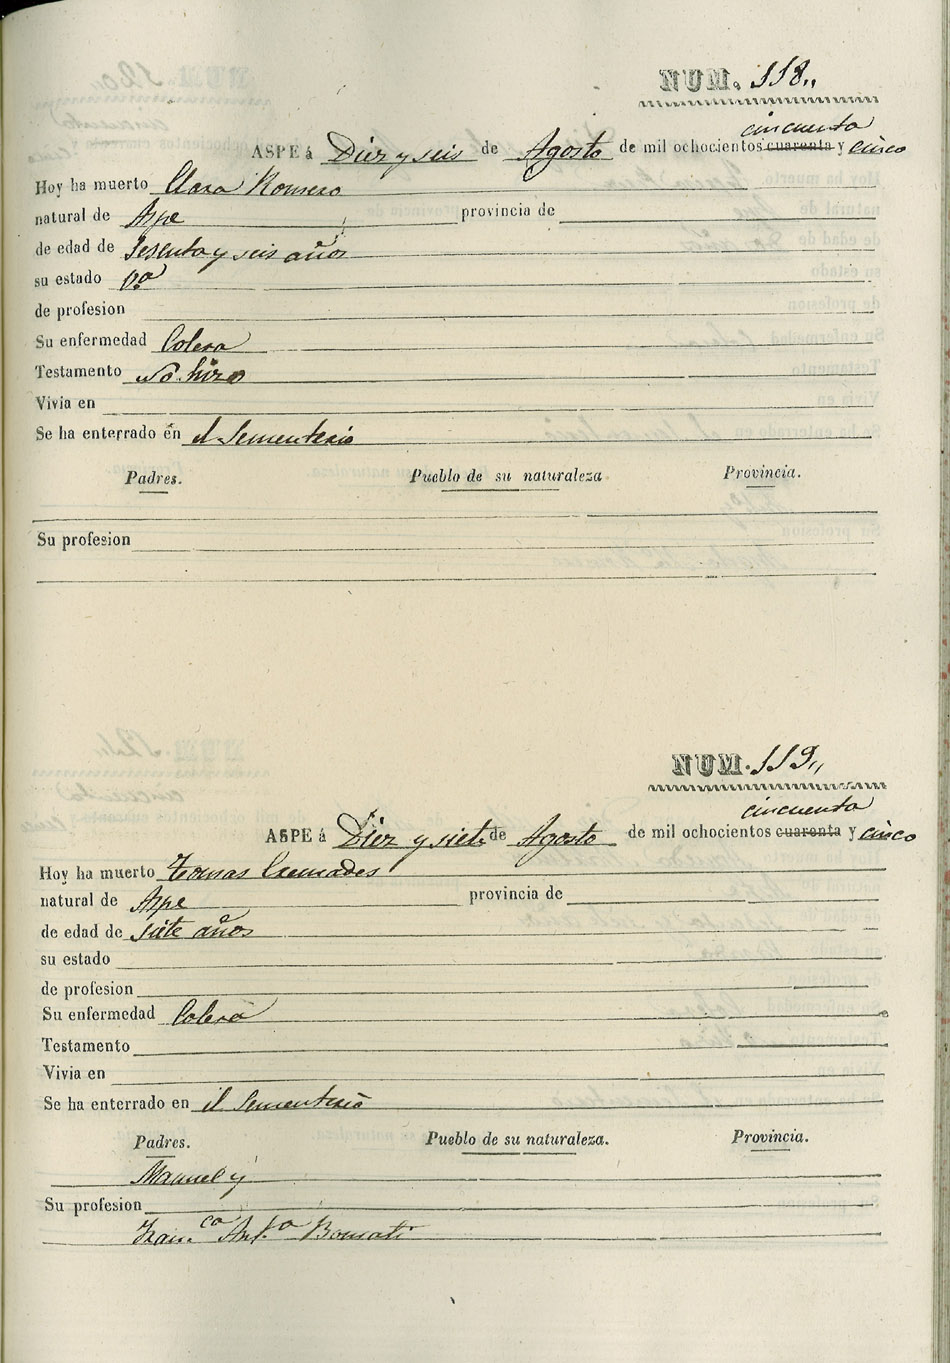 NUM. 118„
cincuenta
ASPE á Diez y seis de Agosto de mil ochocientos cuarenta y cinco
Hoy ha muerto Clara Romero
natural de Aspe provincia de
de edad de Sesenta y seis años
su estado Vª
de profesion
Su enfermedad Colera
Testamento No hizo
Vivia en
Se ha enterrado en el Sementerio
Padres. Pueblo de su naturaleza Provincia.
Su profesion
NUM. 119„
cincuenta
ASPE á Diez y siete de Agosto de mil ochocientos cuarenta y cinco
Hoy ha muerto Tomas Cremades
natural de Aspe provincia de
de edad de siete años
su estado
de profesion
Su enfermedad Colera
Testamento
Vivia en
Se ha enterrado en el Sementerio
Padres. Pueblo de su naturaleza. Provincia.
Manuel y
Su profesion
Fran.ca Ant.a